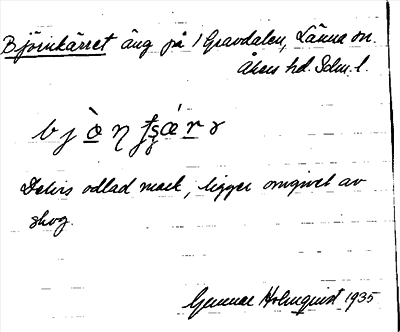 Björnkärret äng på 1 Gravdalen, Länna sn.
Åkers hd. Sdm. l.
Delvis odlad mark, ligger omgivet av
skog.
Gunnar Holmquist 1935